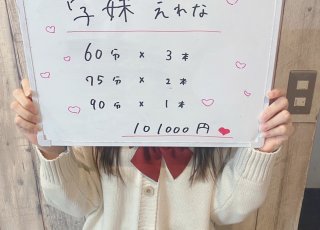 学妹 えれな
60分 × 3本
75分 × 2本
90分 × 1本
101000円